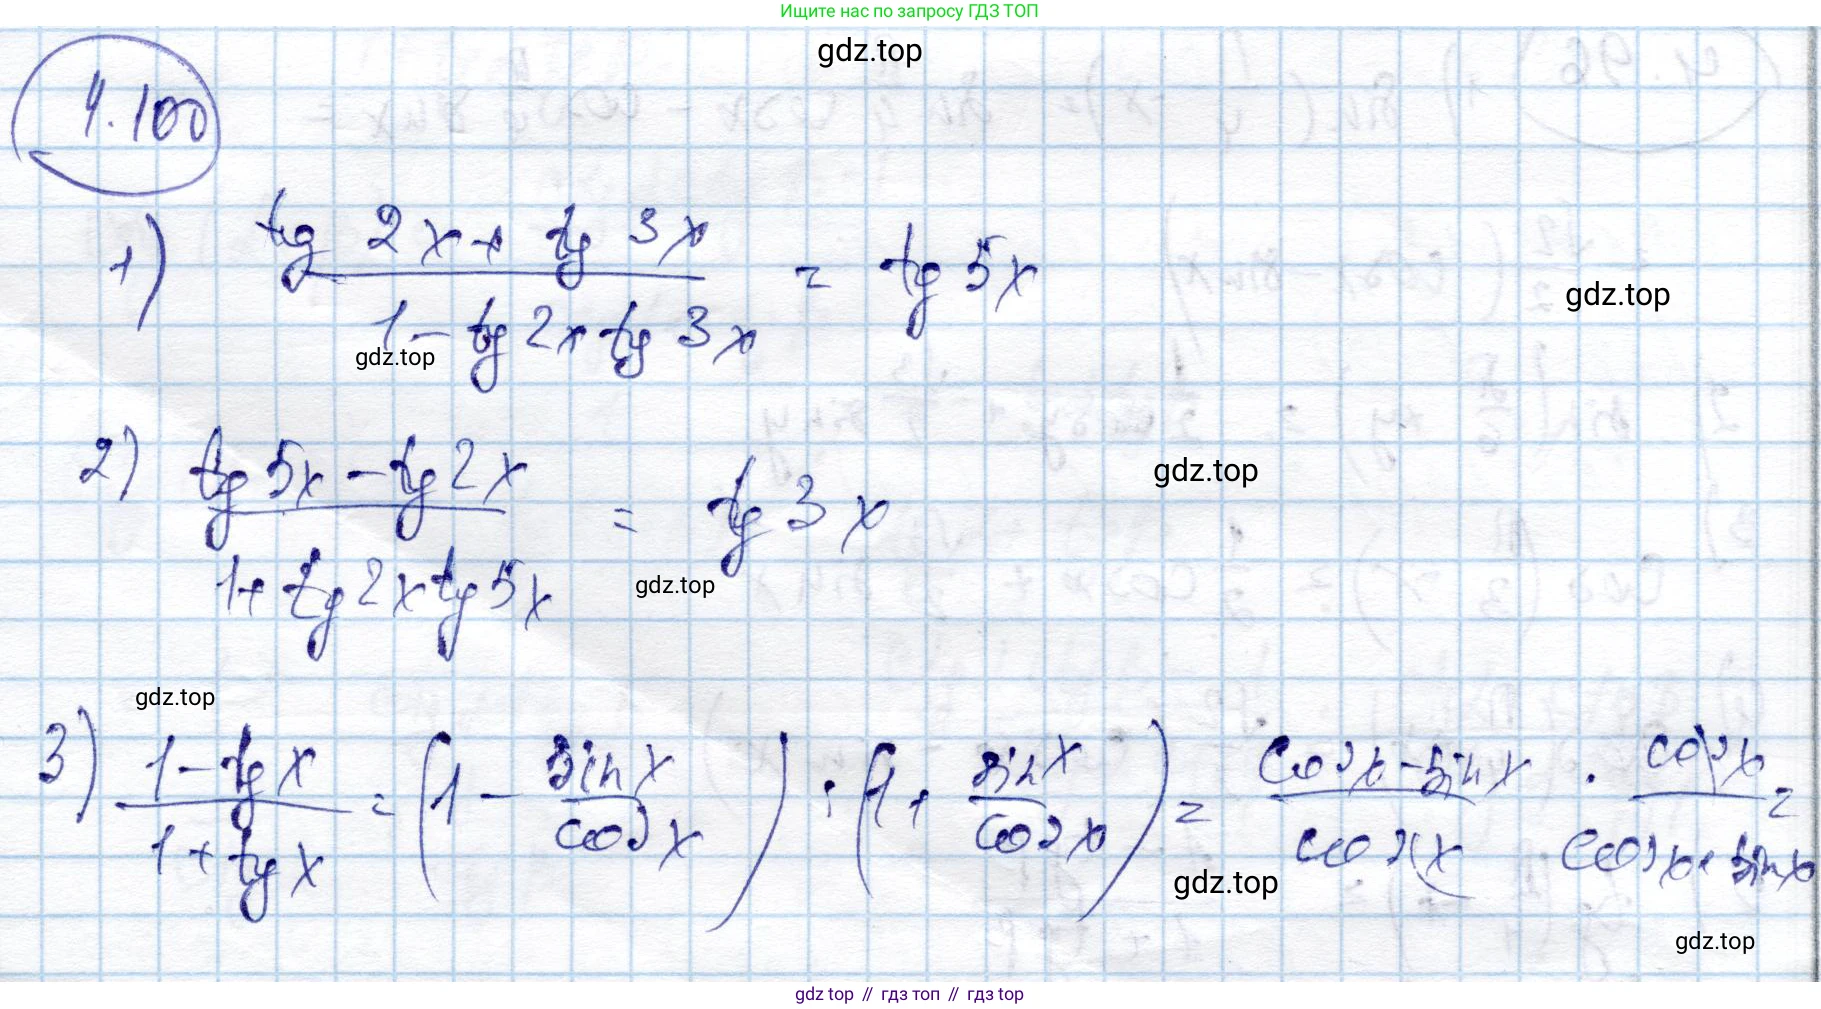 Ищите нас по запросу ГДЗ ТОП
gdz.top
4.100
1) (tg 2x + tg 3x) / (1 - tg 2x tg 3x) = tg 5x
gdz.top
gdz.top
2) (tg 5x - tg 2x) / (1 + tg 2x tg 5x) = tg 3x
gdz.top
gdz.top
gdz.top
3) (1 - tg x) / (1 + tg x) = (1 - sin x / cos x) : (1 + sin x / cos x) = (cos x - sin x) / cos x · cos x / (cos x + sin x) =
gdz.top
gdz.top
gdz top // гдз топ // gdz top